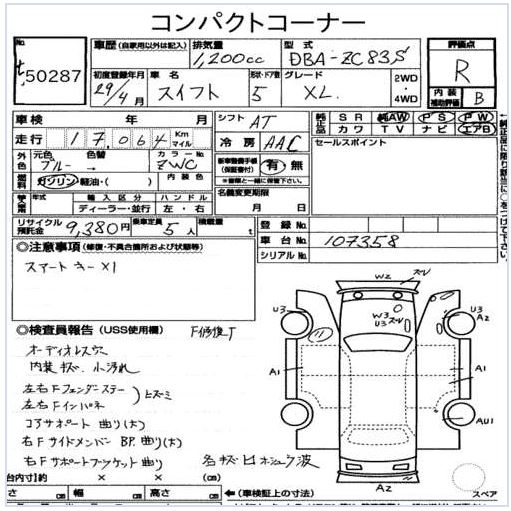 コンパクトコーナー
No.
50287
車歴 (自家用以外は記入)
排気量 1,200cc
型式 DBA-ZC83S
評価点 R
初度登録年月 29/4月
車名 スイフト
形状・ドア数 5
グレード XL
2WD・4WD
内装補助評価 B
車検 年 月
シフト AT
純正品 SR 純AW PS PW
カワ TV ナビ エアB
走行 17,064 Km マイル
冷房 AAC
セールスポイント
外色 元色 ブルー → 色替
カラーNo. ZWC
新車整備手帳(保証書付) 有・無
※書類と一緒に保管下さい。
燃料 ガソリン・軽油・( )
内装色
名義変更期限 月 日
年式 輸入区分 ハンドル
ディーラー・並行 左・右
リサイクル預託金 9,380円
乗車定員 5人
積載量 t
登録No.
車台No. 107358
シリアルNo.
◎注意事項 (修復・不具合箇所および状態等)
スマートキー×1
◎検査員報告 (USS使用欄) F修復T
オーディオレス穴
内装キズ、小汚れ
左右Fフェンダーステー
左右Fインパネ
コアサポート曲り(大)
右Fサイドメンバー BP、曲り(大)
右Fサポートブラケット曲り
各キズ
波
W2
U3
W3
U3
U3
A2
A1
A1
AU1
A2
スペア
台内寸)約 × ×
さ cm 幅 cm 高さ cm
←(車検証上の寸法)